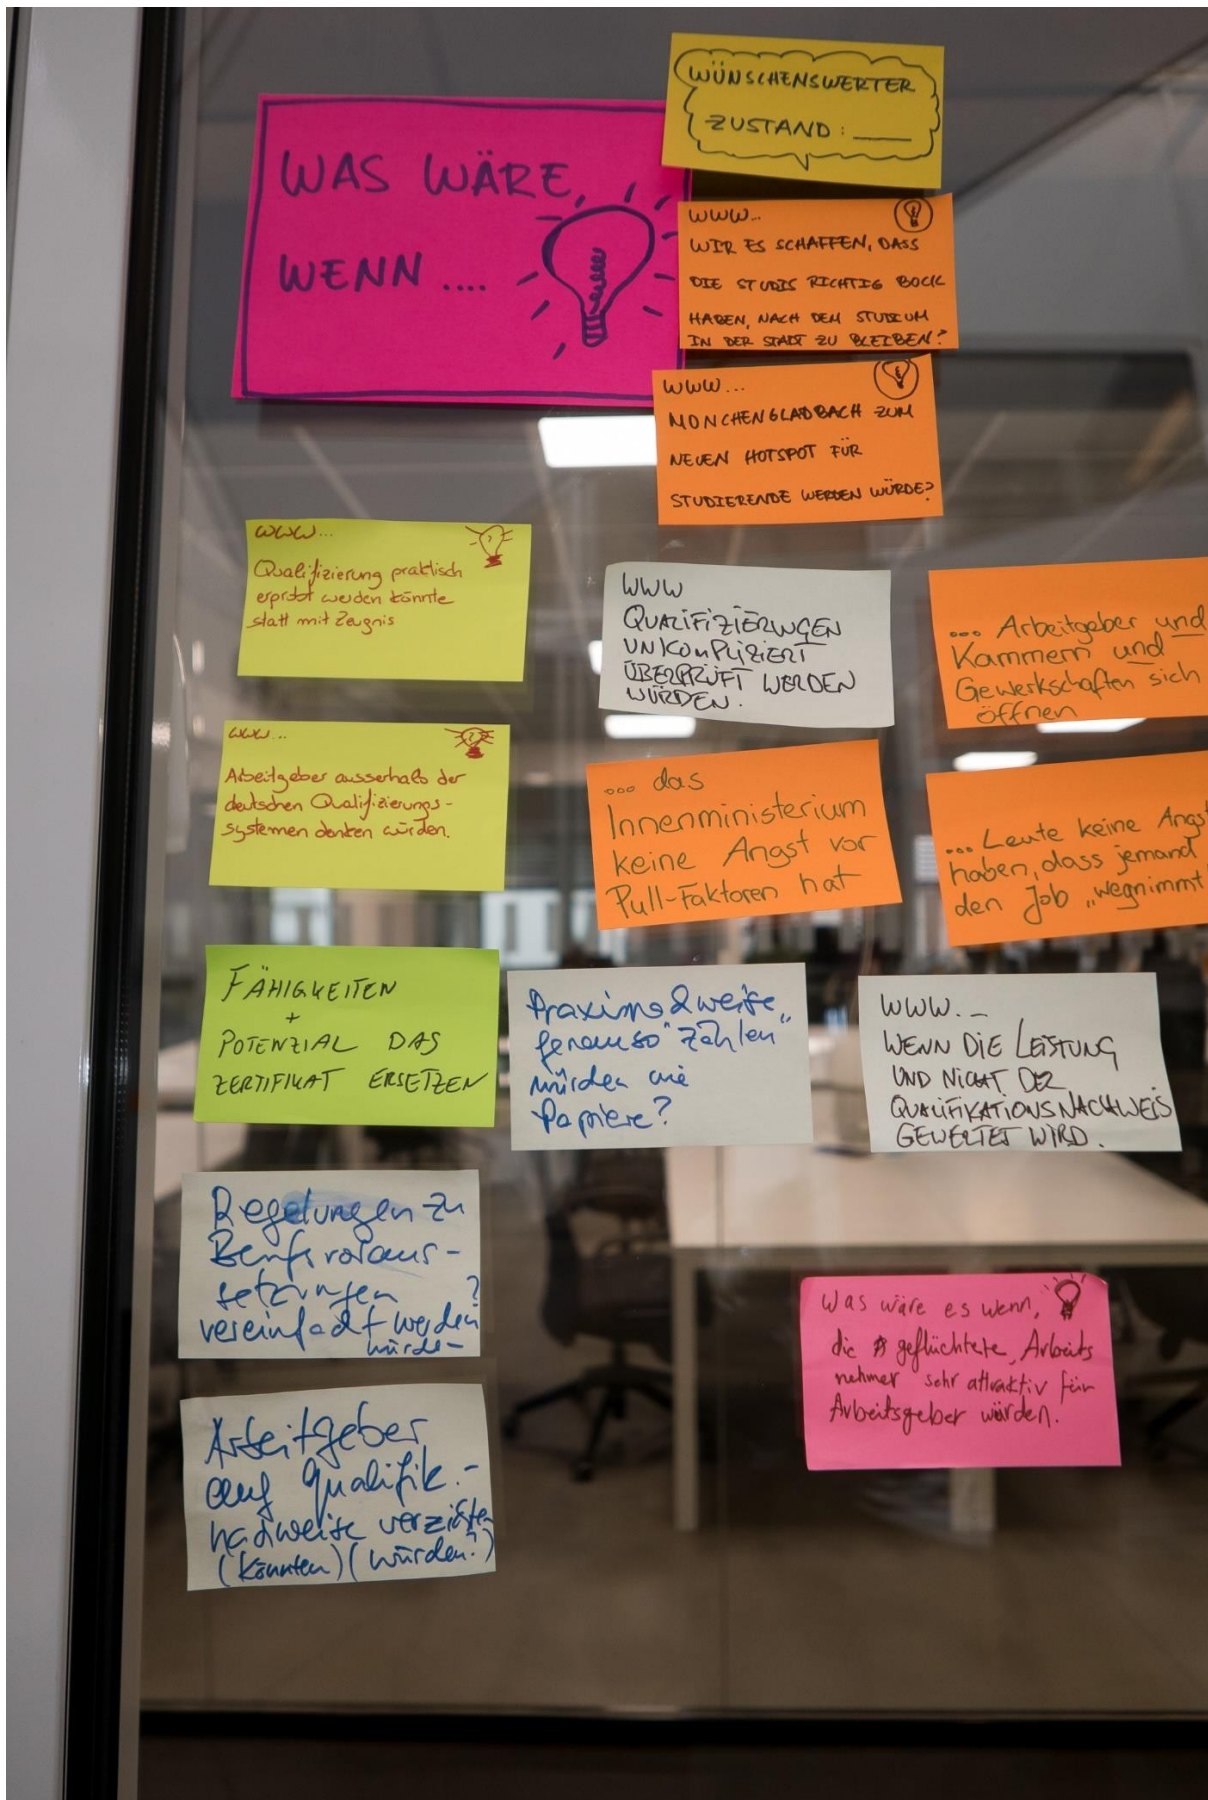 WAS WÄRE,
WENN ....
WÜNSCHENSWERTER
ZUSTAND: ___
WWW...
WIR ES SCHAFFEN, DASS
DIE STUDIS RICHTIG BOCK
HABEN, NACH DEM STUDIUM
IN DER STADT ZU BLEIBEN?
WWW...
MÖNCHENGLADBACH ZUM
NEUEN HOTSPOT FÜR
STUDIERENDE WERDEN WÜRDE?
WWW...
Qualifizierung praktisch
erprobt werden könnte
statt mit Zeugnis
WWW
QUALIFIZIERUNGEN
UNKOMPLIZIERT
ÜBERPRÜFT WERDEN
WÜRDEN.
... Arbeitgeber und
Kammern und
Gewerkschaften sich
öffnen
WWW...
Arbeitgeber ausserhalb der
deutschen Qualifizierungs-
systemen denken würden.
... das
Innenministerium
keine Angst vor
Pull-Faktoren hat
... Leute keine Angst
haben, dass jemand
den Job „wegnimmt
FÄHIGKEITEN
+
POTENZIAL DAS
ZERTIFIKAT ERSETZEN
genauso "zählen"
würden wie
Papiere?
WWW...
WENN DIE LEISTUNG
UND NICHT DER
QUALIFIKATIONSNACHWEIS
GEWERTET WIRD.
Regelungen zu
Berufsvoraus-
setzungen ?
vereinfacht werden
würde-
Was wäre es wenn,
die geflüchtete, Arbeits
nehmer sehr attraktiv für
Arbeitsgeber würden.
Arbeitgeber
auf Qualifik.-
nachweise verzichten
(könnten) (würden?)